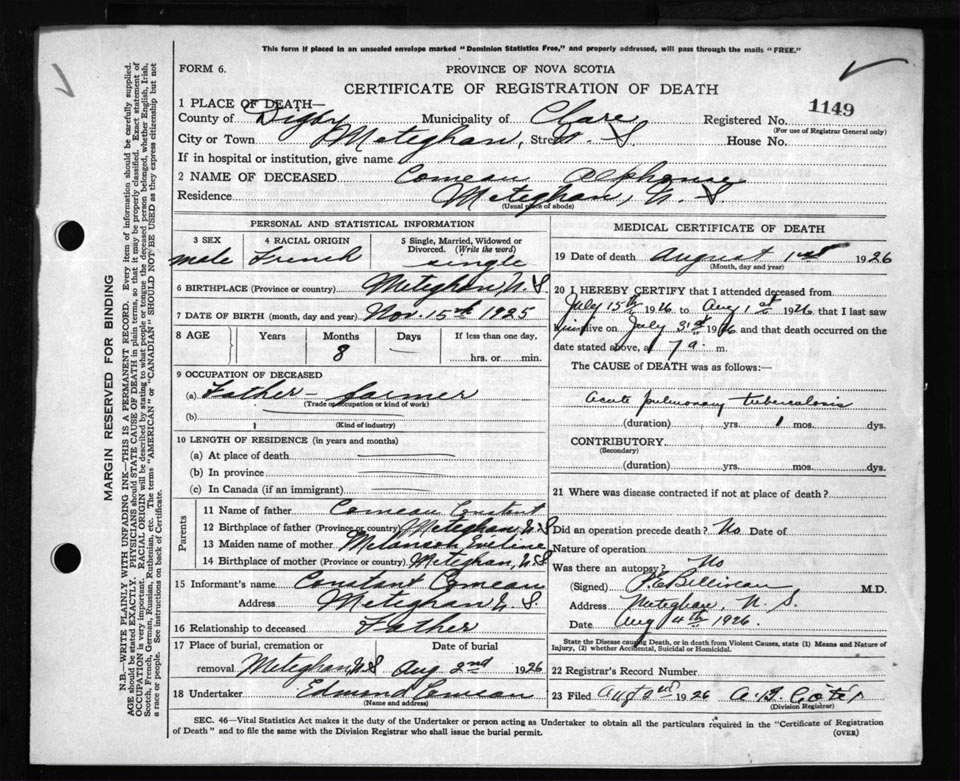 This form if placed in an unsealed envelope marked "Dominion Statistics Free," and properly addressed, will pass through the mails "FREE."
FORM 6.
PROVINCE OF NOVA SCOTIA
CERTIFICATE OF REGISTRATION OF DEATH
1149
1 PLACE OF DEATH—
County of Digby Municipality of Clare Registered No.
(For use of Registrar General only)
City or Town Meteghan, Street N. S House No.
If in hospital or institution, give name
2 NAME OF DECEASED Comeau Alphonse
Residence Meteghan, N. S.
(Usual place of abode)
PERSONAL AND STATISTICAL INFORMATION
3 SEX male
4 RACIAL ORIGIN French
5 Single, Married, Widowed or Divorced. (Write the word) single
6 BIRTHPLACE (Province or country) Meteghan, N.S
7 DATE OF BIRTH (month, day and year) Nov. 15th 1925
8 AGE Years Months 8 Days — If less than one day, hrs. or min.
9 OCCUPATION OF DECEASED
(a) Father farmer
(Trade or occupation or kind of work)
(b)
(Kind of industry)
10 LENGTH OF RESIDENCE (in years and months)
(a) At place of death
(b) In province
(c) In Canada (if an immigrant)
Parents
11 Name of father Comeau Constant
12 Birthplace of father (Province or country) Meteghan, N.S
13 Maiden name of mother Melanson Eveline
14 Birthplace of mother (Province or country) Meteghan, N.S
15 Informant's name Constant Comeau
Address Meteghan N. S.
16 Relationship to deceased Father
17 Place of burial, cremation or removal Meteghan, N.S
Date of burial Aug 2nd 1926
18 Undertaker Edmond Comeau
(Name and address)
MEDICAL CERTIFICATE OF DEATH
19 Date of death August 1st 1926
(Month, day and year)
20 I HEREBY CERTIFY that I attended deceased from
July 15th 1926 to Aug 1st 1926 that I last saw
him alive on July 31st 1926 and that death occurred on
date stated above, at 7 a. m.
The CAUSE of DEATH was as follows:—
Acute pulmonary tuberculosis
(duration) yrs. 1 mos. dys.
CONTRIBUTORY
(Secondary)
(duration) yrs. mos. dys.
21 Where was disease contracted if not at place of death?
Did an operation precede death? No Date of
Nature of operation
Was there an autopsy? No
(Signed) M.D.
Address Meteghan, N. S.
Date Aug 4th 1926.
State the Disease causing Death, or in death from Violent Causes, state (1) Means and Nature of Injury, (2) whether Accidental, Suicidal or Homicidal.
22 Registrar's Record Number
23 Filed Aug 2nd 1926
(Division Registrar)
SEC. 46—Vital Statistics Act makes it the duty of the Undertaker or person acting as Undertaker to obtain all the particulars required in the "Certificate of Registration of Death" and to file the same with the Division Registrar who shall issue the burial permit.
(OVER)
MARGIN RESERVED FOR BINDING
N.B.—WRITE PLAINLY WITH UNFADING INK—THIS IS A PERMANENT RECORD. Every item of information should be carefully supplied.
AGE should be stated EXACTLY. PHYSICIANS should STATE CAUSE OF DEATH in plain terms, so that it may be properly classified. Exact statement of
OCCUPATION is very important. RACIAL ORIGIN will be described by stating to what people or tongue the deceased person belonged, whether English, Irish,
Scotch, French, German, Russian, Ruthenian, etc. The terms "AMERICAN" or "CANADIAN" SHOULD NOT BE USED as they express citizenship but not
a race or people. See instructions on back of Certificate.